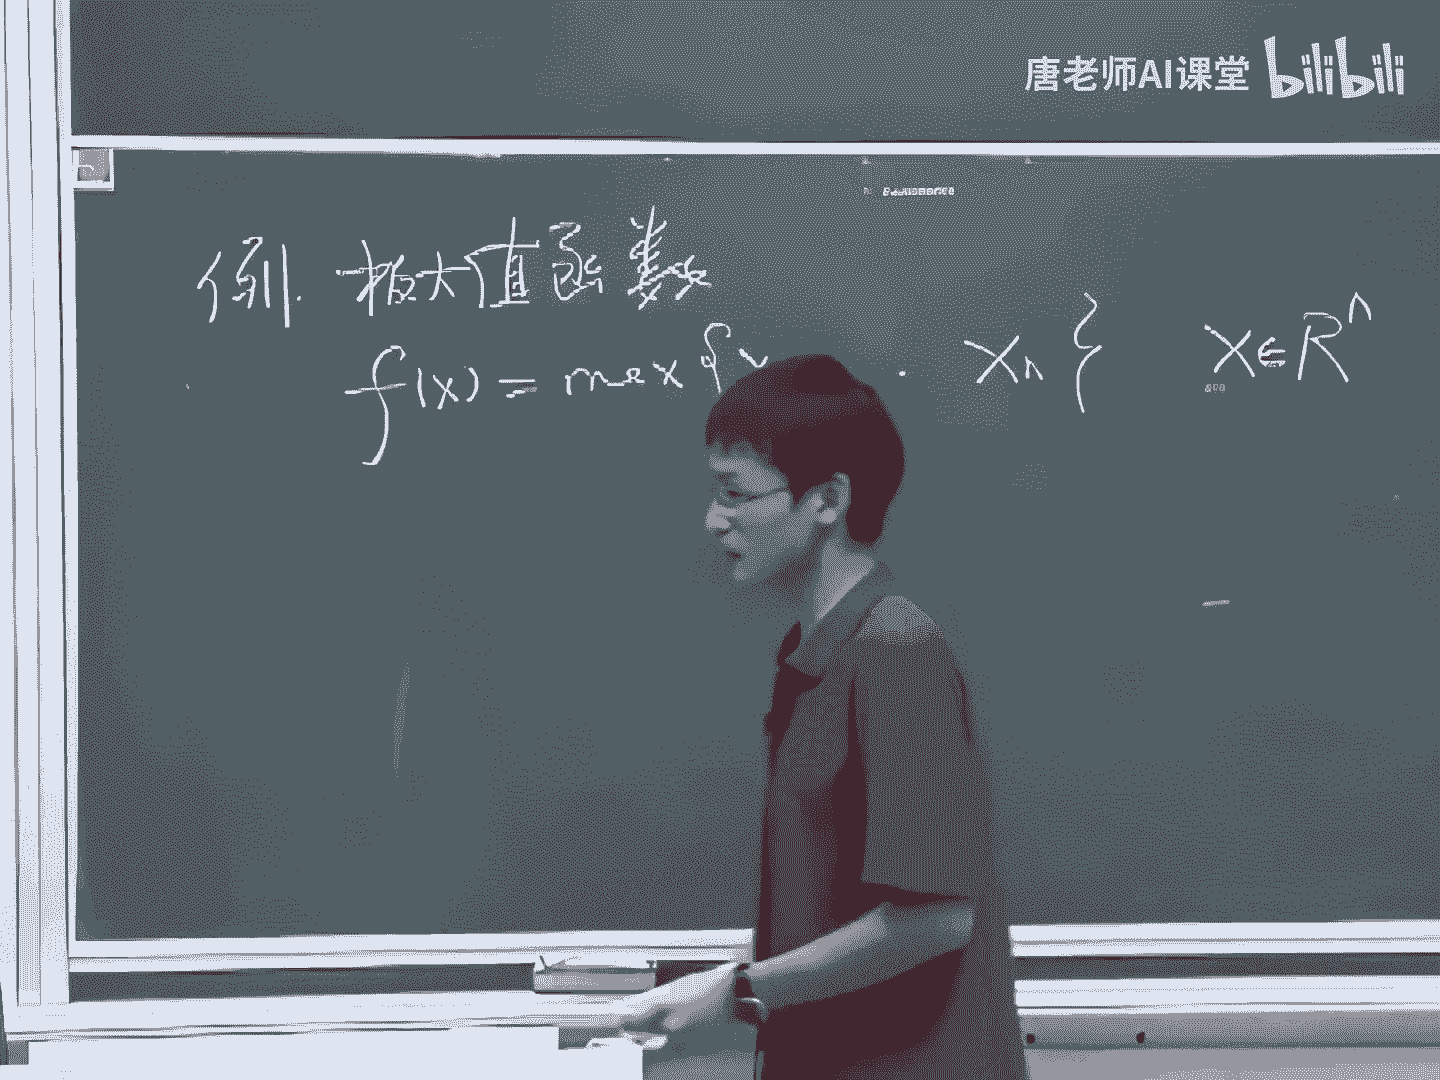 唐老师AI课堂 bilibili
例. 极大值函数
f(x) = max { x . xn } x∈R^n